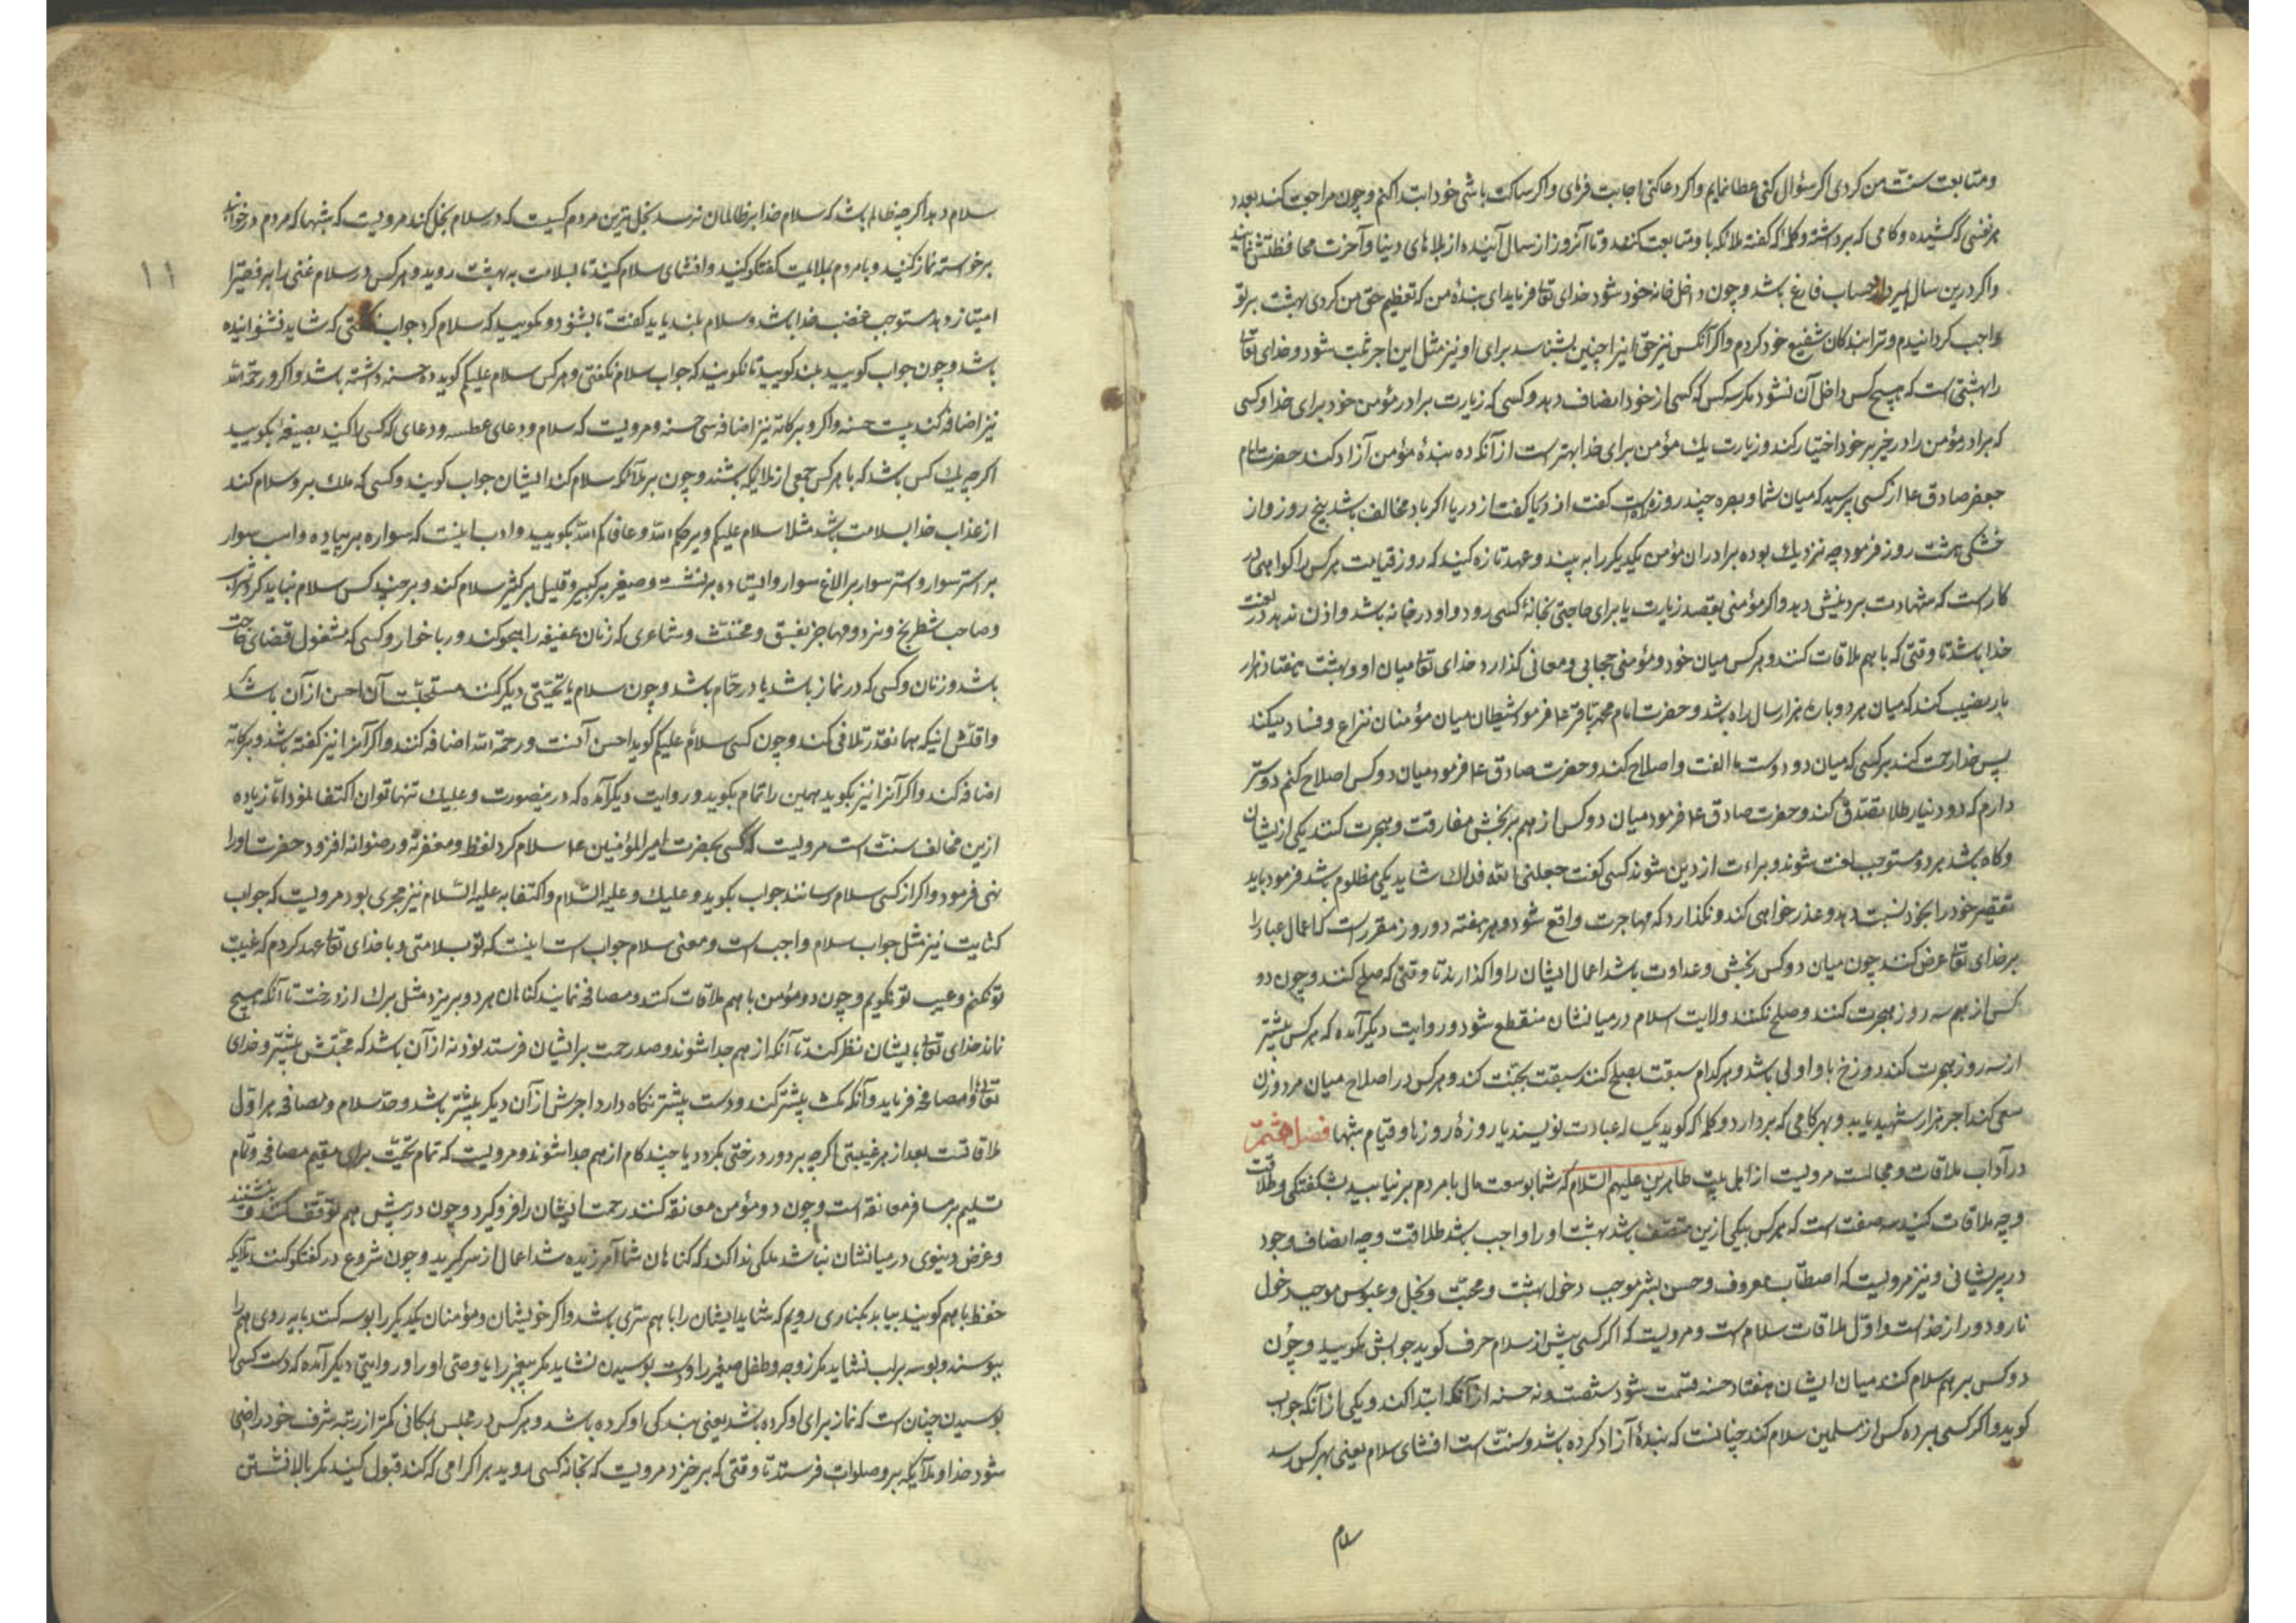 و متابعت سنت من کردی اگر سؤال کنی عطا نمایم و اگر دعا کنی اجابت فرمای و اگر ساکت باشی خود ابتدا کنم و چون مراجعت کند بعدد
هر نفسی که کشیده و کامی که برداشته و کلمه که گفته ملائکه با و متابعت کنند و تا آنروز از سال آینده از بلاهای دنیا و آخرت محافظتش نمایند
و اگر درین سال بمیرد از حساب فارغ باشد و چون داخل خانه خود شود خدای تعا فرماید ای بندهٔ من که تعظیم حق من کردی بهشت بر تو
واجب گردانیدم و ترا بندکان شفیع خود کردم و اگر آنکس نیز حق اینرا چنین بشناسد برای او نیز مثل این اجر ثبت شود و خدای تعا
را بهشتی است که هیچ کس داخل آن نشود مکر سه کس که کسی از خود انصاف دهد و کسی که زیارت برادر مؤمن خود برای خدا و کسی
که برادر مؤمن را در خیر بر خود اختیار کند و زیارت یک مؤمن برای خدا بهتر است از آنکه ده بندهٔ مؤمن آزاد کند حضرت امام
جعفر صادق ع از کسی پرسید که میان شما و بصره چند روزه است گفت از دریا اگر باد مخالف باشد پنج روز و از
خشکی هشت روز فرمود چه نزدیک بوده برادران مؤمن یکدیگر را به بینند و عهد تازه کنید که روز قیامت هر کس را کواهی در
کار است که شهادت بر دینش دهد و اگر مؤمنی بقصد زیارت یا برای حاجتی بخانهٔ کسی رود و او در خانه باشد و اذن ندهد در لعنت
خدا باشد تا وقتی که با هم ملاقات کنند و هر کس میان خود و مؤمنی حجابی و مانعی گذارد خدای تعا میان او و بهشت هفتاد هزار
باره نصب کند که میان هر دو باره هزار سال راه باشد و حضرت امام محمد باقر ع فرمود شیطان میان مؤمنان نزاع و فساد میکند
پس خدا رحمت کند بر کسی که میان دو دوست ما الفت و اصلاح کند و حضرت صادق ع فرمود میان دو کس اصلاح کنم دوستر
دارم که دو دینار طلا بتصدق کند و حضرت صادق ع فرمود میان دو کس از هم برنجش مفارقت و هجرت کنند یکی از یشان
و کاه باشد هر دو مستوجب لعنت شوند و براءت از دین شوند کسی گفت جعلنی الله فداک شاید یکی مظلوم باشد فرمود باید
تقصیر خود را بخود نسبت دهد و عذر خواهی کند و نگذارد که مهاجرت واقع شود و هر هفته دو روز مقرر است که اعمال عباد را
بر خدای تعا عرض کنند چون میان دو کس رنجش و عداوت باشد اعمال ایشان را واگذارند تا وقتی که صلح کنند و چون دو
کس از هم سه روز هجرت کنند و صلح نکنند ولایت اسلام در میانشان منقطع شود و روایت دیگر آمده که هر کس بیشتر
از سه روز هجرت کند دوزخ باو اولی باشد و هر کدام سبقت بصلح کنند سبقت بجنت کند و هر کس در اصلاح میان مرد و زن
سعی کند اجر هزار شهید یابد و بهر کامی که بردارد و کلمه که گوید یک ساله عبادت نویسند با روزهٔ روزها و قیام شبها فصل هشتم
در آداب ملاقات و مجالست مرویست از اهل بیت طاهرین علیهم السلام که شما بوسعت مال با مردم بر نیایید بشکفتگی و طلاقت
وجه ملاقات کنید سه صفت است که هر کس بیکی ازین متصف باشد بهشت او را واجب باشد طلاقت وجه انصاف و جود
در پریشانی و نیز مرویست که اصطناب معروف و حسن بشر موجب دخول بهشت و محبت و بخل و عبوس موجب دخول
نار و دور از خداست و اول ملاقات سلام است و مرویست که اگر کسی پیش از سلام حرف گوید جوابش مگویید و چون
دو کس بر هم سلام کنند میان ایشان هفتاد حسنه قسمت شود شصت و نه حسنه از آنکه ابتدا کند و یکی از آنکه جواب
گوید و اگر کسی بر ده کس از مسلمین سلام کند چنانست که بندهٔ آزاد کرده باشد و سنت است افشای سلام یعنی بهر کس رسد
سلام
۱۱
سلام دهد اگر چه ظالم باشد که سلام خدا بر ظالمان نرسد بخیل ترین مردم کسیست که در سلام بخل کند مرویست که شبها که مردم در خوابند
برخواسته نماز کنید و با مردم بملایمت گفتگو کنید و افشای سلام کنید تا بسلامت به بهشت روید و هر کس در سلام غنی را بر فقیر
امتیاز دهد مستوجب غضب خدا باشد و سلام بلند باید گفت تا بشنود و نکویید که سلام کردم جواب نگفتی که شاید نشنوانیده
باشد و چون جواب گویید بلند گویید تا نگویند که جواب سلام نگفتی و هر کس سلام علیکم گوید ده حسنه داشته باشد و اگر و رحمة الله
نیز اضافه کند بیست حسنه و اگر و برکاته نیز اضافه سی حسنه و مرویست که سلام و دعای عطسه و دعای که کسی را کنید بصیغهٔ بگویید
اگر چه یک کس باشد که با هر کس جمعی از ملایکه باشند و چون بر ملائکه سلام کند ایشان جواب گویند و کسی که ملک بر و سلام کند
از عذاب خدا بسلامت باشد مثلا سلام علیکم و یرحمکم الله و عافاکم الله بگویید و ادب اینست که سواره بر پیاده و اسب سوار
بر استر سوار و استر سوار بر الاغ سوار و ایستاده بر نشسته و صغیر بر کبیر و قلیل بر کثیر سلام کند و بر چند کس سلام نباید کرد
و صاحب شطرنج و نرد و مهاجر بفسق و مخنث و شاعری که زنان عفیفه را هجو کند و ربا خوار و کسی که مشغول قضای حاجت
باشد و زنان و کسی که در نماز باشد یا در حمام باشد و چون سلام یا تحیتی دیگر کنند مستحبست آن احسن از آن باشد
و اقلش اینکه همانقدر تلافی کند و چون کسی سلام علیکم گوید احسن آنست و رحمة الله اضافه کنند و اگر آنرا نیز گفته باشد و برکاته
اضافه کند و اگر آنرا نیز بگوید همین را تمام بگوید و روایت دیگر آمده که درینصورت و علیک تنها توان اکتفا نمود اما زیاده
ازین مخالف سنت است مرویست که کسی بحضرت امیر المؤمنین ع سلام کرد لفظ و مغفرته و رضوانه افزود حضرت او را
نهی فرمود و اگر از کسی سلام رسانند جواب بگوید و علیک و علیه السلام و اکتفا به علیه السلام نیز مجری بود مرویست که جواب
کتابت نیز مثل جواب سلام واجب است و معنی سلام جواب است اینست که تو بسلامتی و با خدای تعا عهد کردم که غیبت
تو نکنم و عیب تو نگویم و چون دو مؤمن با هم ملاقات کنند و مصافحه نمایند گناهان هر دو بریزد مثل برگ از درخت تا آنکه هیچ
نماند خدای تعا بایشان نظر کند تا آنکه از هم جدا شوند و صد رحمت بر ایشان فرستد نود نه از آن باشد که محبتش بیشتر و خدای
تعا با او مصافحه فرماید و آنکه مکث بیشتر کند و دست بیشتر نگاه دارد اجرش از آن دیگر بیشتر باشد و حد سلام و مصافحه هر اول
ملاقاتست بعد از هر غیبتی اگر چه بر دور درختی بگردد یا چند کام از هم جدا شوند و مرویست که تمام تحیت برای مقیم مصافحه و تمام
تسلیم بر مسافر معانقه است و چون دو مؤمن معانقه کنند رحمت ایشان را فرو گیرد و چون در پیش هم توقف کنند
و غرض دنیوی در میانشان نباشد ملکی ندا کند که گناهان شما آمرزیده شد اعمال از سر گیرید و چون شروع در گفتگو کنند ملائکه
حفظ با هم گویند بیایید بکناری رویم که شاید ایشان را با هم سری باشد و اگر خویشان و مؤمنان یکدیگر را بوسه کنند باید روی هم را
ببوسند و بوسه بر لب نشاید مگر زوجه و طفل صغیر را و دست بوسیدن نشاید مگر پیغمبر را یا وصی او را و روایتی دیگر آمده که دست کسی را
بوسیدن چنان است که نماز برای او کرده باشد یعنی بندگی او کرده باشد و هر کس در مجلس بمکانی کمتر از رتبه شرف خود راضی
شود خدا و ملائکه بر و صلوات فرستند تا وقتی که برخیزد مرویست که بخانه کسی روید هر اکرامی که کند قبول کنید مگر بالا نشستن